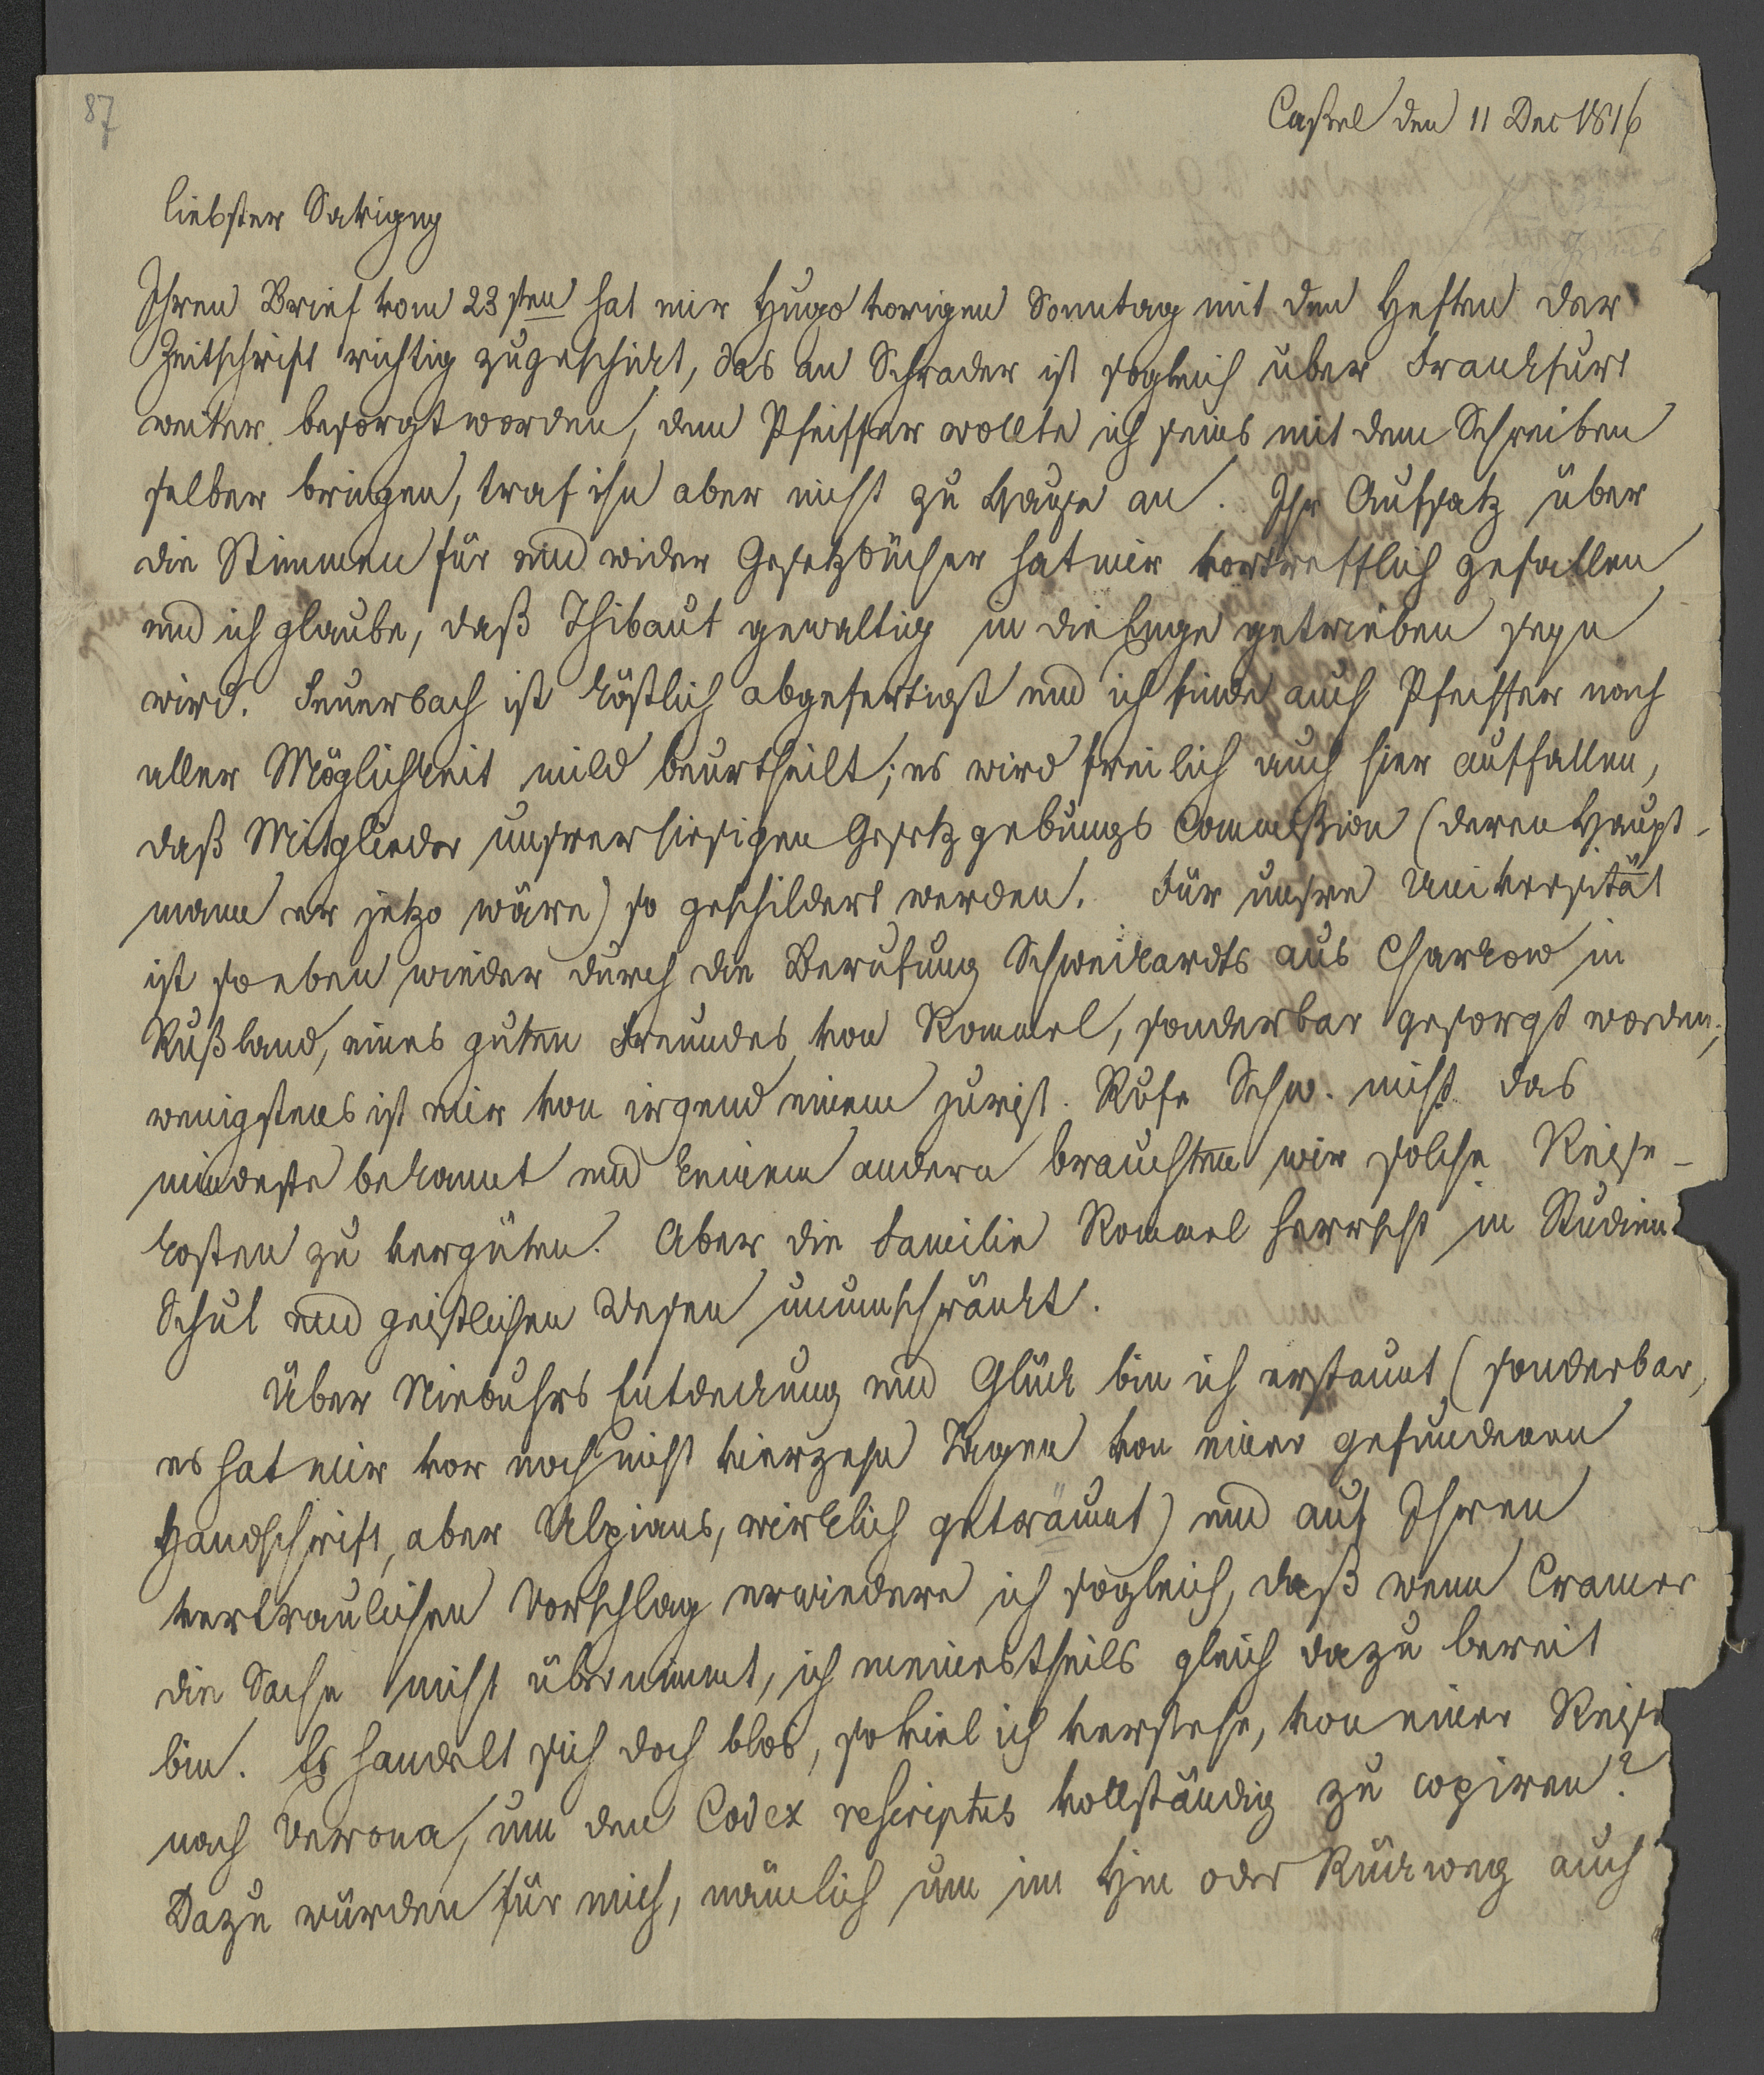 87
Caßel den 11 Dec 1816
liebster Savigny
Ihren Brief vom 23sten hat mir Hugo vorigen Sonntag mit den Heften der
Zeitschrift richtig zugeschickt, das an Schrader ist sogleich über Frankfurt
weiter besorgt worden, dem Pfeiffer wollte ich seins mit dem Schreiben
selber bringen, traf ihn aber nicht zu Hause an. Ihr Aufsatz über
die Stimmen für und wider Gesetzbücher hat mir vortrefflich gefallen
und ich glaube, daß Thibaut gewaltig in die Enge getrieben seyn
wird. Feuerbach ist köstlich abgefertigt und ich finde auch Pfeiffer nach
aller Möglichkeit mild beurtheilt; es wird freilich auch hier auffallen,
daß Mitglieder unsrer hiesigen Gesetzgebungs Commißion (deren Haupt-
mann er jetzo wäre) so geschildert werden. Für unsre Universität
ist so eben wieder durch die Berufung Schweikardts aus Charkow in
Rußland, eines guten Freundes von Rommel, sonderbar gesorgt worden;
wenigstens ist mir von irgend einem jurist. Rufe Schw. nicht das
mindeste bekannt und keinem andern brauchten wir solche Reise-
kosten zu vergüten. Aber die Familie Rommel herrscht in Studien
Schul und geistlichen Wesen unumschränkt.
Über Niebuhrs Entdeckung und Glück bin ich erstaunt (sonderbar,
es hat mir vor noch nicht vierzehn Tagen von einer gefundenen
Handschrift, aber Ulpians, wirklich geträumt) und auf Ihren
vertraulichen Vorschlag erwiedere ich sogleich, daß wenn Cramer
die Sache nicht übernimmt, ich meinestheils gleich dazu bereit
bin. Es handelt sich doch blos, so viel ich verstehe, von einer Reise
nach Verona, um den Codex rescriptus vollständig zu copiren?
Dazu würden für mich, nämlich um im Hin oder Rückweg auch